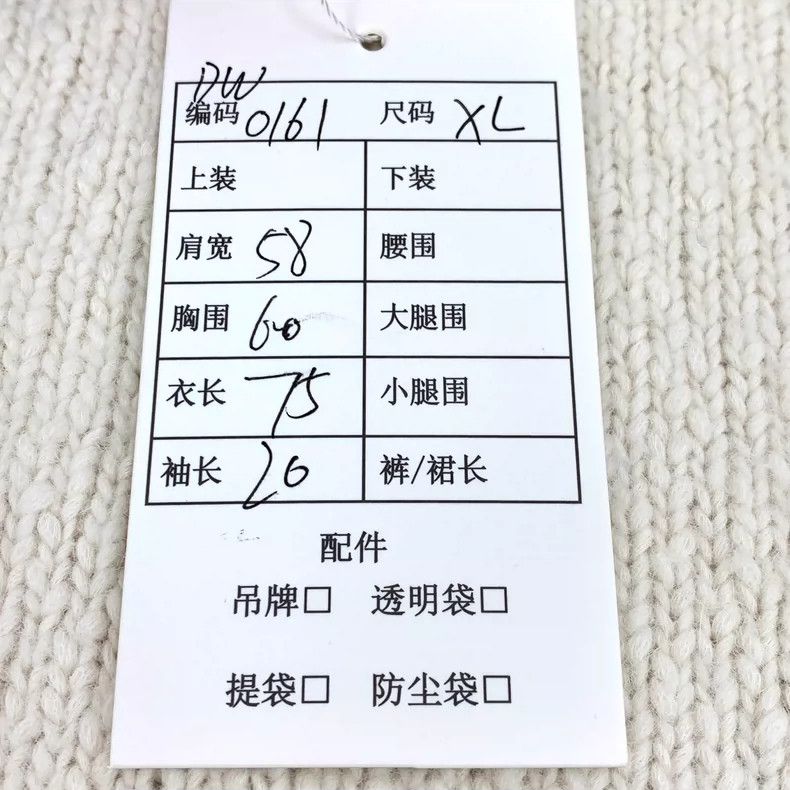 DW
编码 0161 尺码 XL
上装 下装
肩宽 58 腰围
胸围 60 大腿围
衣长 75 小腿围
袖长 20 裤/裙长
配件
吊牌□ 透明袋□
提袋□ 防尘袋□